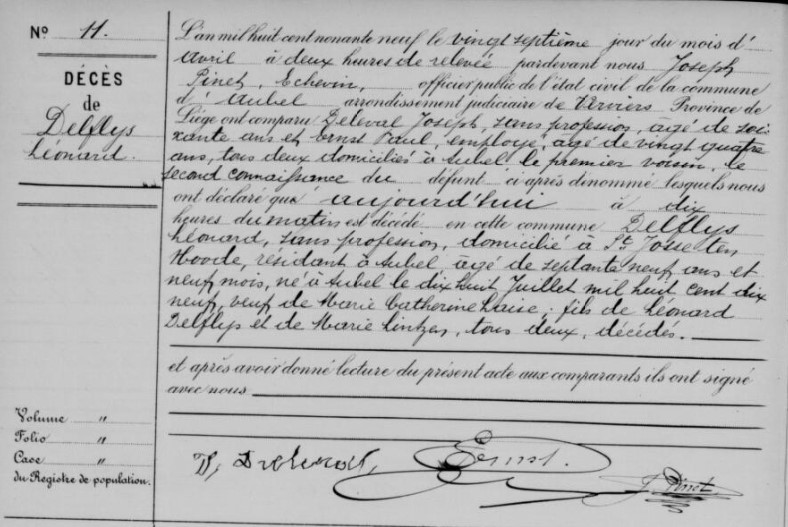 N° 11.
DÉCÈS
de
Delflys
Léonard.
L'an mil huit cent nonante neuf le vingt septième jour du mois d'
Avril à deux heures de relevée pardevant nous Joseph
Pinet, Echevin, officier public de l'état civil de la commune
d' Aubel arrondissement judiciaire de Verviers Province de
Liège ont comparu Deleval Joseph, sans profession, âgé de soi-
xante ans et Ernst Paul, employé, âgé de vingt quatre
ans, tous deux domiciliés à Aubel le premier voisin, le
second connaissance du défunt ci après dénommé lesquels nous
ont déclaré qu' aujourd'hui à dix
heures du matin est décédé en cette commune Delflys
Léonard, sans profession, domicilié à St. Josse ten
Hoode, résidant à Aubel âgé de septante neuf ans et
neuf mois, né à Aubel le dix huit Juillet mil huit cent dix
neuf, veuf de Marie Catherine ; fils de Léonard
Delflys et de Marie Lintzen, tous deux, décédés.
et après avoir donné lecture du présent acte aux comparants ils ont signé
avec nous
Volume "
Folio "
Case "
du Registre de population.
Ernst.
J. Pinet